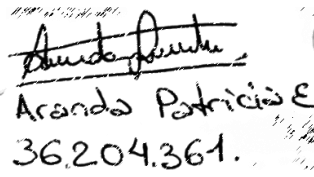 Aranda Patricia E
36.204.361.